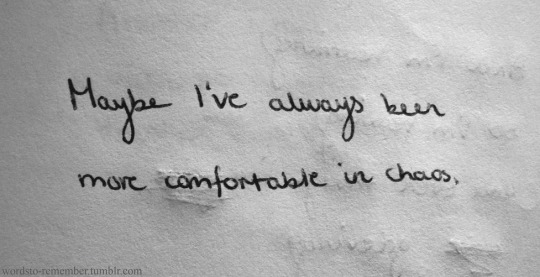 Maybe I've always been
more comfortable in chaos.
wordsto-remember.tumblr.com